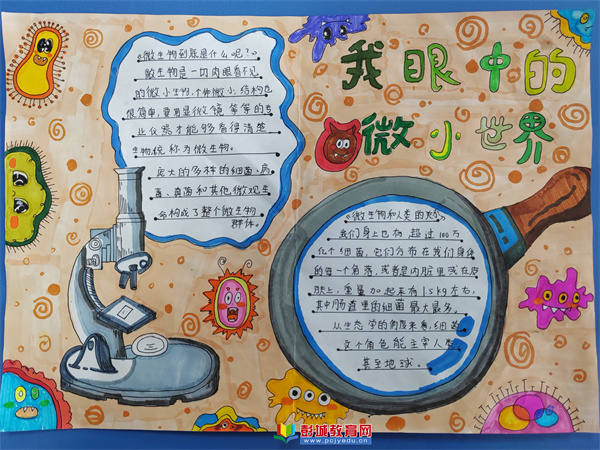 我眼中的
微小世界
《微生物到底是什么呢?》
微生物是一切肉眼看不见
的微小生物,个体微小,结构也
很简单,要用显微镜等等的专
业仪器才能够看得清楚
生物统称为微生物。
庞大的多样的细菌、病
毒、真菌和其他微观生
命构成了整个微生物
群体。
《微生物和人类的关系》
我们身上也有超过100万
亿个细菌,它们分布在我们身体
的每一个角落,或者是内脏里或在皮
肤上,重量加起来有1.5kg左右,
其中肠道里的细菌最大最多。
从生态学的角度来看,细菌在
这个角色能主宰人类
甚至地球。
彭城教育网
www.pcjyedu.cn